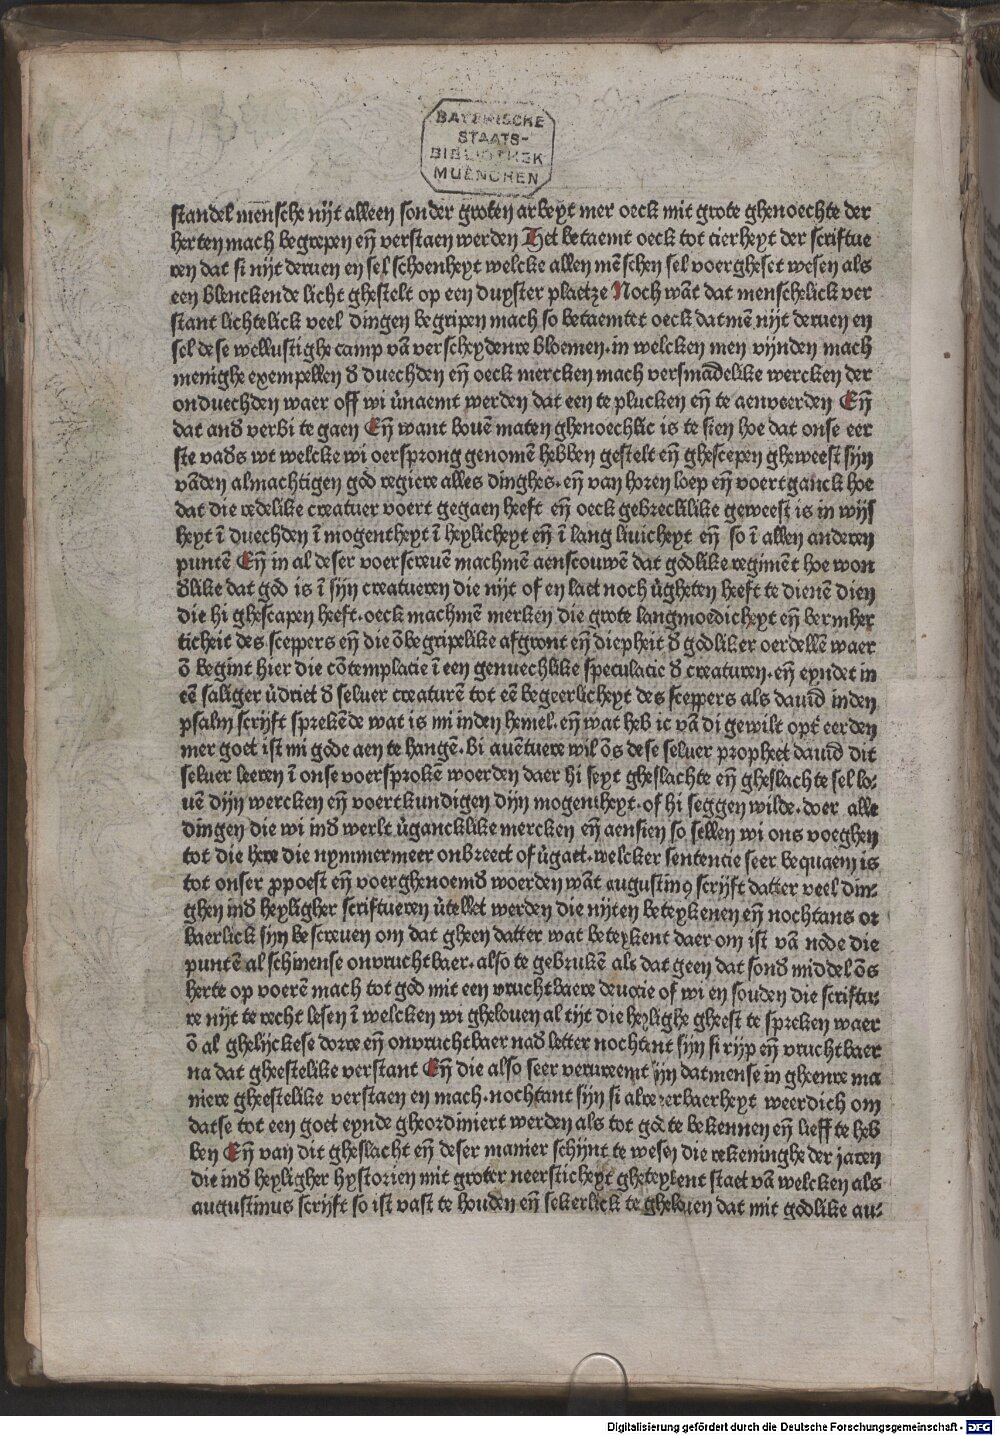 BAYERISCHE
STAATS-
BIBLIOTHEK
MUENCHEN
standel mensche nijt alleen sonder groten arbeyt mer oeck mit grote ghenoechte der
herten mach begrepen eñ verstaen werden Het betaemt oeck tot cierheyt der scriftue
ren dat si nijt deruen en sel schoenheyt welcke allen mēschen sel voergheset wesen als
een blenckende licht ghestelt op een duyster plaetze Noch wāt dat menschelick ver
stant lichtelick veel dingen begripen mach so betaemtet oeck datmē nijt deruen en
sel dese wellustighe camp vā verscheydenre bloemen. in welcken men vijnden mach
menighe exempellen ð duechden eñ oeck mercken mach versmādelike wercken der
onduechden waer off wi ũnaemt werden dat een te plucken eñ te aenveerden Eñ
dat anð verbi te gaen Eñ want bouē maten ghenoechlic is te sien hoe dat onse eer
ste vaðs wt welcke wi oersprong genomē hebben gestelt eñ ghescepen gheweest sijn
vāden almachtigen god regiere alles dinghes. eñ van horen loep eñ voertganck hoe
dat die redelike creatuer voert gegaen heeft eñ oeck gebrecklike geweest is in wijs
heyt ī duechden ī mogentheyt ī heylicheyt eñ ī lang liuicheyt eñ so ī allen anderen
puntē Eñ in al deser voerscreuē machmē aenscouwē dat godlike regimēt hoe won
ðlike dat god is ī sijn creatueren die nijt of en laet noch ũgheten heeft te dienē dien
die hi ghescapen heeft. oeck machmē merken die grote langmoedicheyt eñ bermher
ticheit des sceppers eñ die ōbegripelike afgront eñ diepheit ð godliker oerdellē waer
ō begint hier die cōtemplacie ī een genuechlike speculacie ð creaturen. eñ eyndet in
eē saliger ũdriet ð seluer creaturē tot eē begeerlicheyt des sceppers als dauid inden
psalm scrijft sprekēde wat is mi inden hemel. eñ wat heb ic vā di gewilt opt eerden
mer goet ist mi gode aen te hangē. Bi auētuere wil ōs dese seluer propheet dauid dit
seluer leeren ī onse voersprokē woerden daer hi seyt gheslachte eñ gheslachte sel lo⸗
uē dijn wercken eñ voertkundigen dijn mogentheyt. of hi seggen wilde. doer alle
dingen die wi inð werlt ũgancklike mercken eñ aensien so sellen wi ons voeghen
tot die here die nymmermeer onbreect of ũgaet. welcker sentencie seer bequaem is
tot onser ꝓpoest eñ voerghenoemð woerden wāt augustinꝰ scrijft datter veel din⸗
ghen inð heyligher scriftueren ũtellet werden die nijten beteykenen eñ nochtans or
baerlick sijn bescreuen om dat gheen datter wat beteykent daer om ist vā node die
puntē al schinense onvruchtbaer. also te gebrukē als dat geen dat sonð middel ōs
herte op voerē mach tot god mit een vruchtbaere deuocie of wi en souden die scriftu⸗
re nijt te recht lesen ī welcken wi ghelouen al tijt die heylighe gheest te spreken waer
ō al ghelijckese dorre eñ onvruchtbaer nað letter nochtant sijn si rijp eñ vruchtbaer
na dat gheestelike verstant Eñ die also seer verureemt sijn datmense in gheenre ma
niere gheestelike verstaen en mach. nochtant sijn si alre eerbaerheyt weerdich om
datse tot een goet eynde gheordiniert werden als tot god te bekennen eñ lieff te heb
ben Eñ van dit gheslacht eñ deser manier schijnt te wesen die rekeninghe der jaren
die inð heyligher hystorien mit groter neersticheyt gheteykent staet vā welcken als
augustinus scrijft so ist vast te houden eñ sekerlick te ghelouen dat mit godlike au⸗
Digitalisierung gefördert durch die Deutsche Forschungsgemeinschaft - DFG